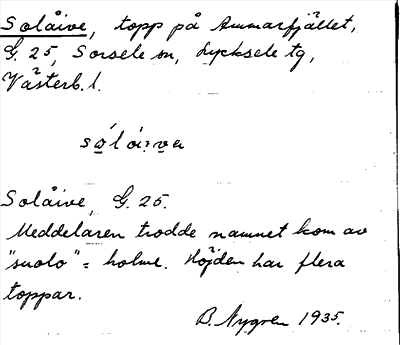 Solåive, topp på Ammarfjället,
G. 25, Sorsele sn, Lycksele tg,
Västerb. l.
Solåive, G. 25.
Meddelaren trodde namnet kom av
"suolo" = holme. Höjden har flera
toppar.
B. Nygren 1935.